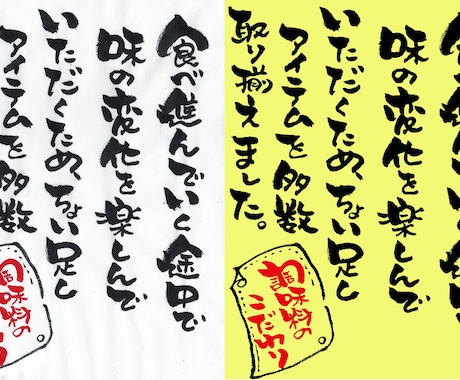 食べ進んでいく途中で
味の変化を楽しんで
いただくため、ちょい足し
アイテムを多数
調味料の
食べ進んでいく途中で
味の変化を楽しんで
いただくため、ちょい足し
アイテムを多数
取り揃えました。
調味料の
こだわり